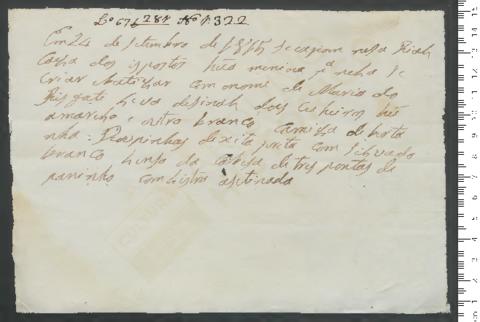 Lo 676 284 No 1322
Em 24 de setembro de 1845 se expoem nesta Rial
Caza dos ispostos hũa menina pª nela se
criar Batizar com o nome de Maria do
leva de sinal dois cueiros hũ
amarelo e outro branco camiza de
nha: Roupinhas de xita preta com
branco lenso da cabesa de tres pontas de
paninho com listra asetinada